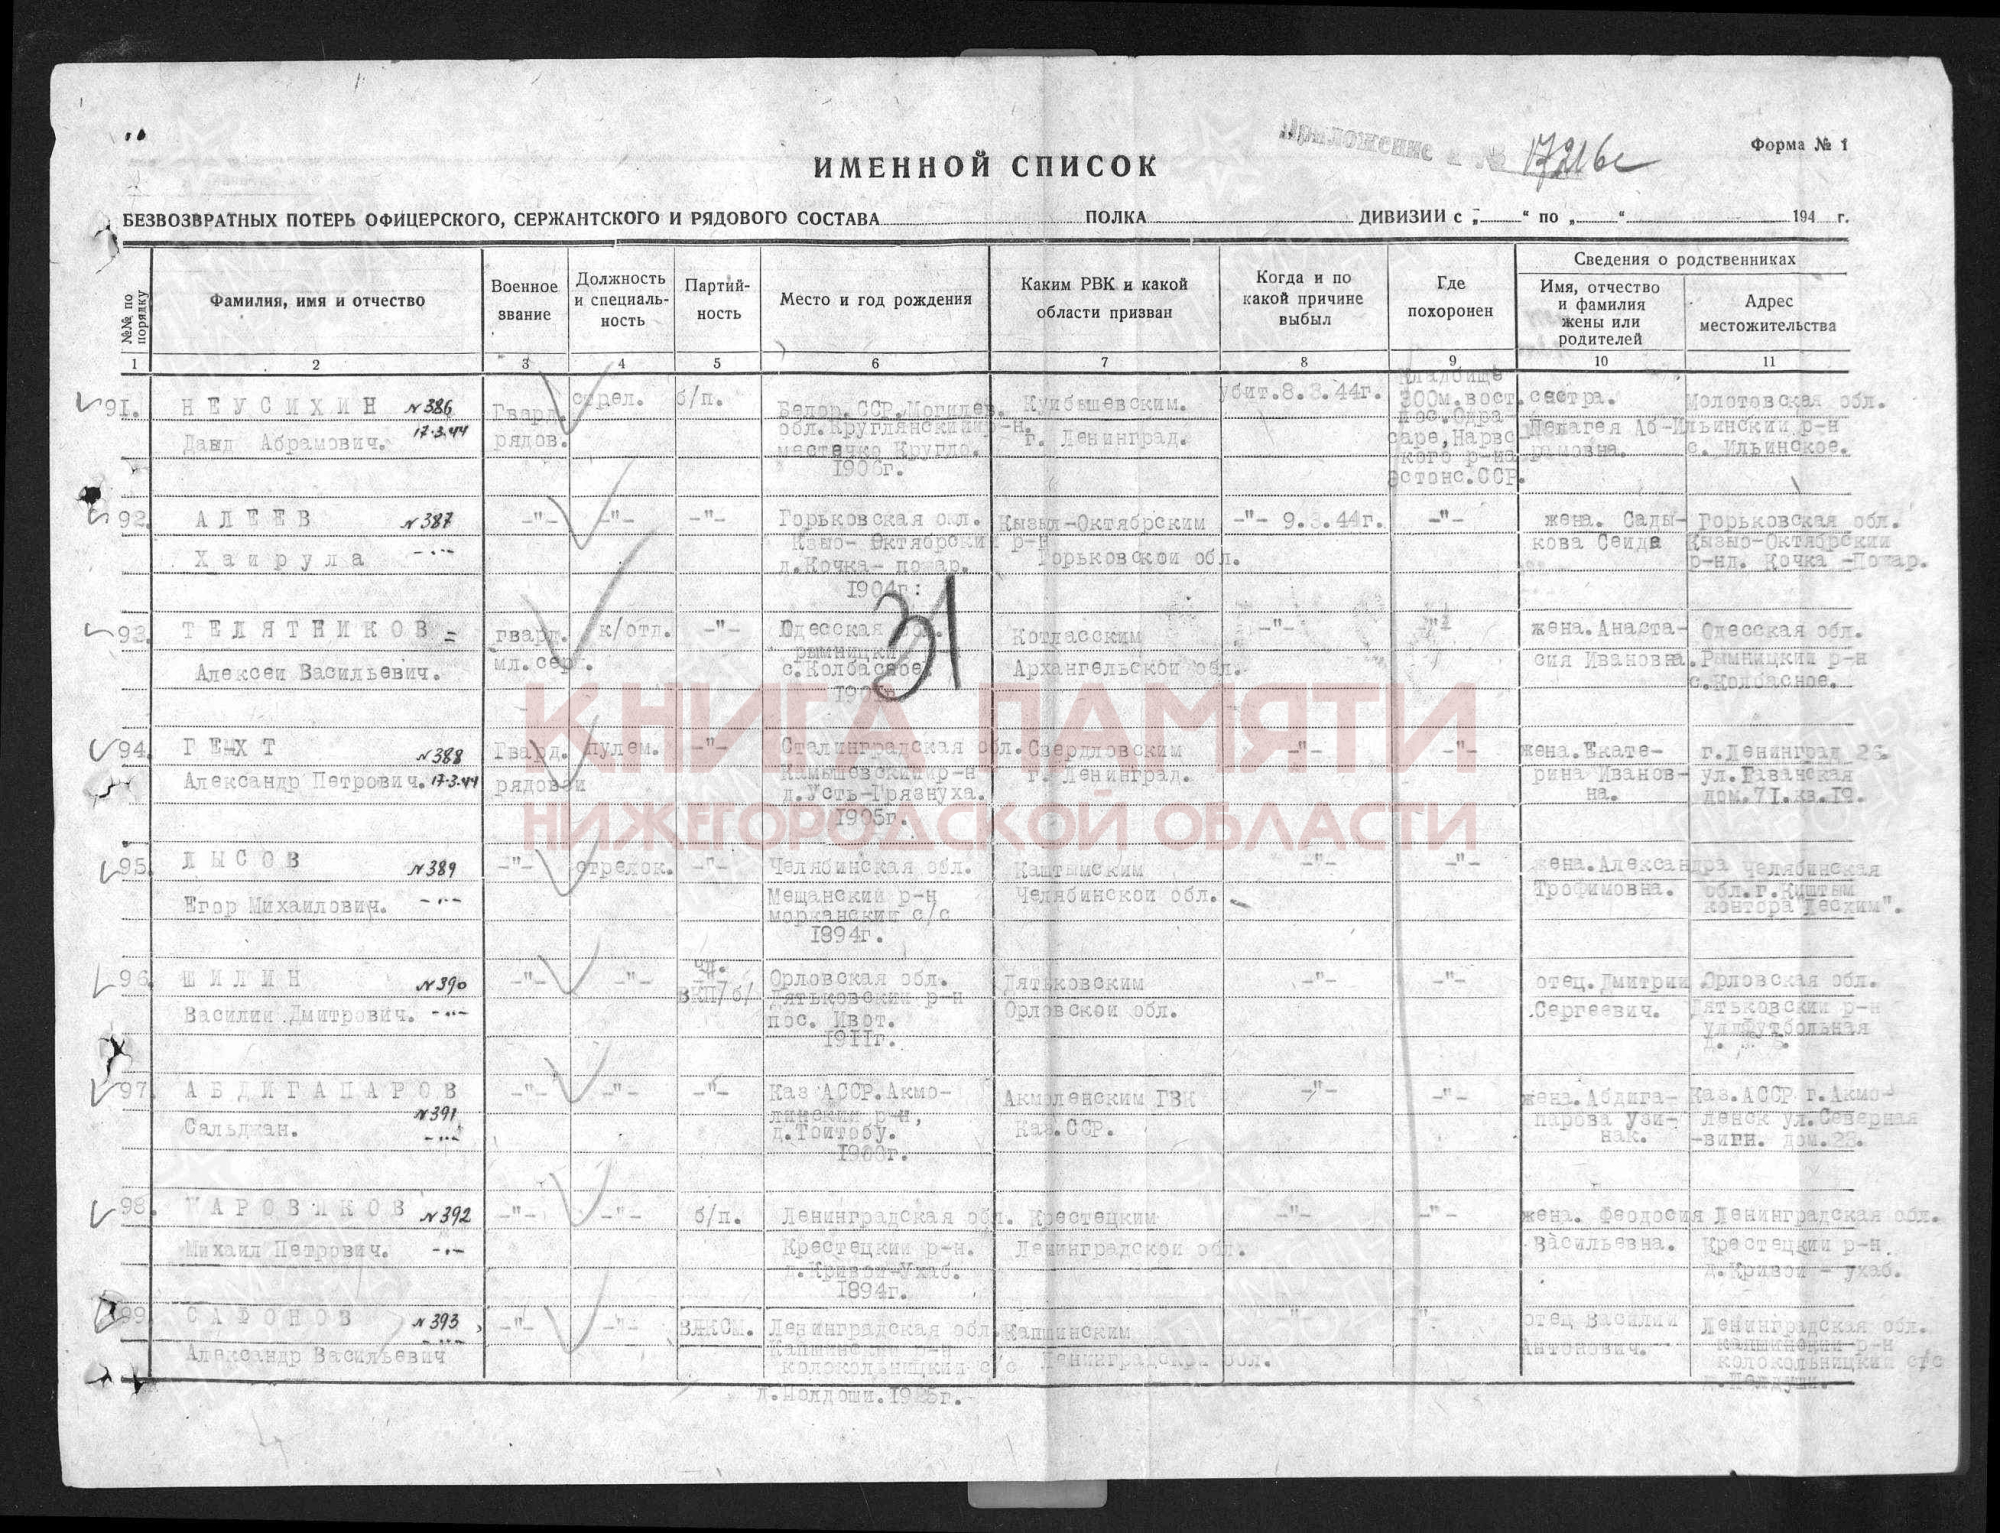 Приложение к № 17216с
Форма № 1
ИМЕННОЙ СПИСОК
БЕЗВОЗВРАТНЫХ ПОТЕРЬ ОФИЦЕРСКОГО, СЕРЖАНТСКОГО И РЯДОВОГО СОСТАВА ПОЛКА ДИВИЗИИ с „ “ по „ “ 194 г.
№№ по порядку
Фамилия, имя и отчество
Военное звание
Должность и специаль-ность
Партий-ность
Место и год рождения
Каким РВК и какой области призван
Когда и по какой причине выбыл
Где похоронен
Сведения о родственниках
Имя, отчество и фамилия жены или родителей
Адрес местожительства
1 2 3 4 5 6 7 8 9 10 11
91. НЕУСИХИН №386 Гвард. стрел. б/п. Белор.ССР.Могилев. Куйбышевским. убит.8.3.44г. Кладбище 300м.вост. сестра. Молотовская обл.
17.3.44 обл.Круглянский р-н. пос.Одра-
Давид Абрамович. рядов. местечко Кругло. г. Ленинград. саре,Нарвс- Пелагея Аб- Ильинский р-н
1903г. кого р-на с. Ильинское.
Эстонс.ССР.
92. АЛЕЕВ №387 -"- -"- -"- Горьковская обл. Кзыл-Октябрским -"- 9.3.44г. -"- жена. Сады- Горьковская обл.
Хаирула -"- Кзыо-Октябрский р-н Горьковской обл. кова Сеида Кызыо-Октябрский
д.Кочка-пожар. р-нд. Кочка-Пожар.
1904г.
31
93. ТЕЛЯТНИКОВ гвард. к/отл. -"- Одесская обл. Котласским -"- -"- жена.Анаста- Одесская обл.
Алексей Васильевич. мл.сер. рымницкий Архангельской обл. сия Ивановна. Рымницкий р-н
с.Колбасное. с.Колбасное.
94. ГЕХТ №388 Гвард. пулем. -"- Сталинградская обл. Свердловским -"- -"- жена.Екате- г.Ленинград 26
Александр Петрович. 17.3.44 рядовой Камышовский р-н г. Ленинград. рина Иванов- ул.Гаванская
д.Усть-Грязнуха. на. дом.71.кв.19.
1905г.
КНИГА ПАМЯТИ
НИЖЕГОРОДСКОЙ ОБЛАСТИ
95. ЛЫСОВ №389 -"- стрелок. -"- Челябинская обл. Каштымским -"- -"- жена.Александра Челябинская
Егор Михайлович. -"- Мещанский р-н Челябинской обл. Трофимовна. обл.г.Киштым
морканский с/с контора "Лесхим".
1894г.
96. ШИЛИН №390 -"- -"- чл. Орловская обл. Дятьковским -"- -"- отец.Дмитрий Орловская обл.
Василий Дмитрович. -"- ВКП/б/ Дятьковский р-н Орловской обл. Сергеевич. Дятьковский р-н
пос. Ивот.
1911г.
97. АБДИГАПАРОВ №391 -"- -"- -"- Каз АССР.Акмо- Акмоленским ГВК -"- -"- жена.Абдига- Каз.АССР г.Акмо-
Сальджан. -"- линский р-н, Каз.ССР. парова Узи- ленск ул.Северная
д.Тоитобу. нак. дом.23.
1900г.
98. ШАРОВИКОВ №392 -"- -"- б/п. Ленинградская обл. Крестецким -"- -"- жена. Феодосия Ленинградская обл.
Михаил Петрович. -"- Крестецкий р-н. Ленинградской обл. Васильевна. Крестецкий р-н.
д.Кривой-Ухаб. д.Кривой - ухаб.
1894г.
99. САФОНОВ №393 -"- -"- ВЛКСМ. Ленинградская обл. Капшинским -"- -"- отец Василий Ленинградская обл.
Александр Васильевич -"- Капшинский р-н Ленинградской обл. Антонович. капшинский р-н
колокольницкий с/с колокольницкий с/с